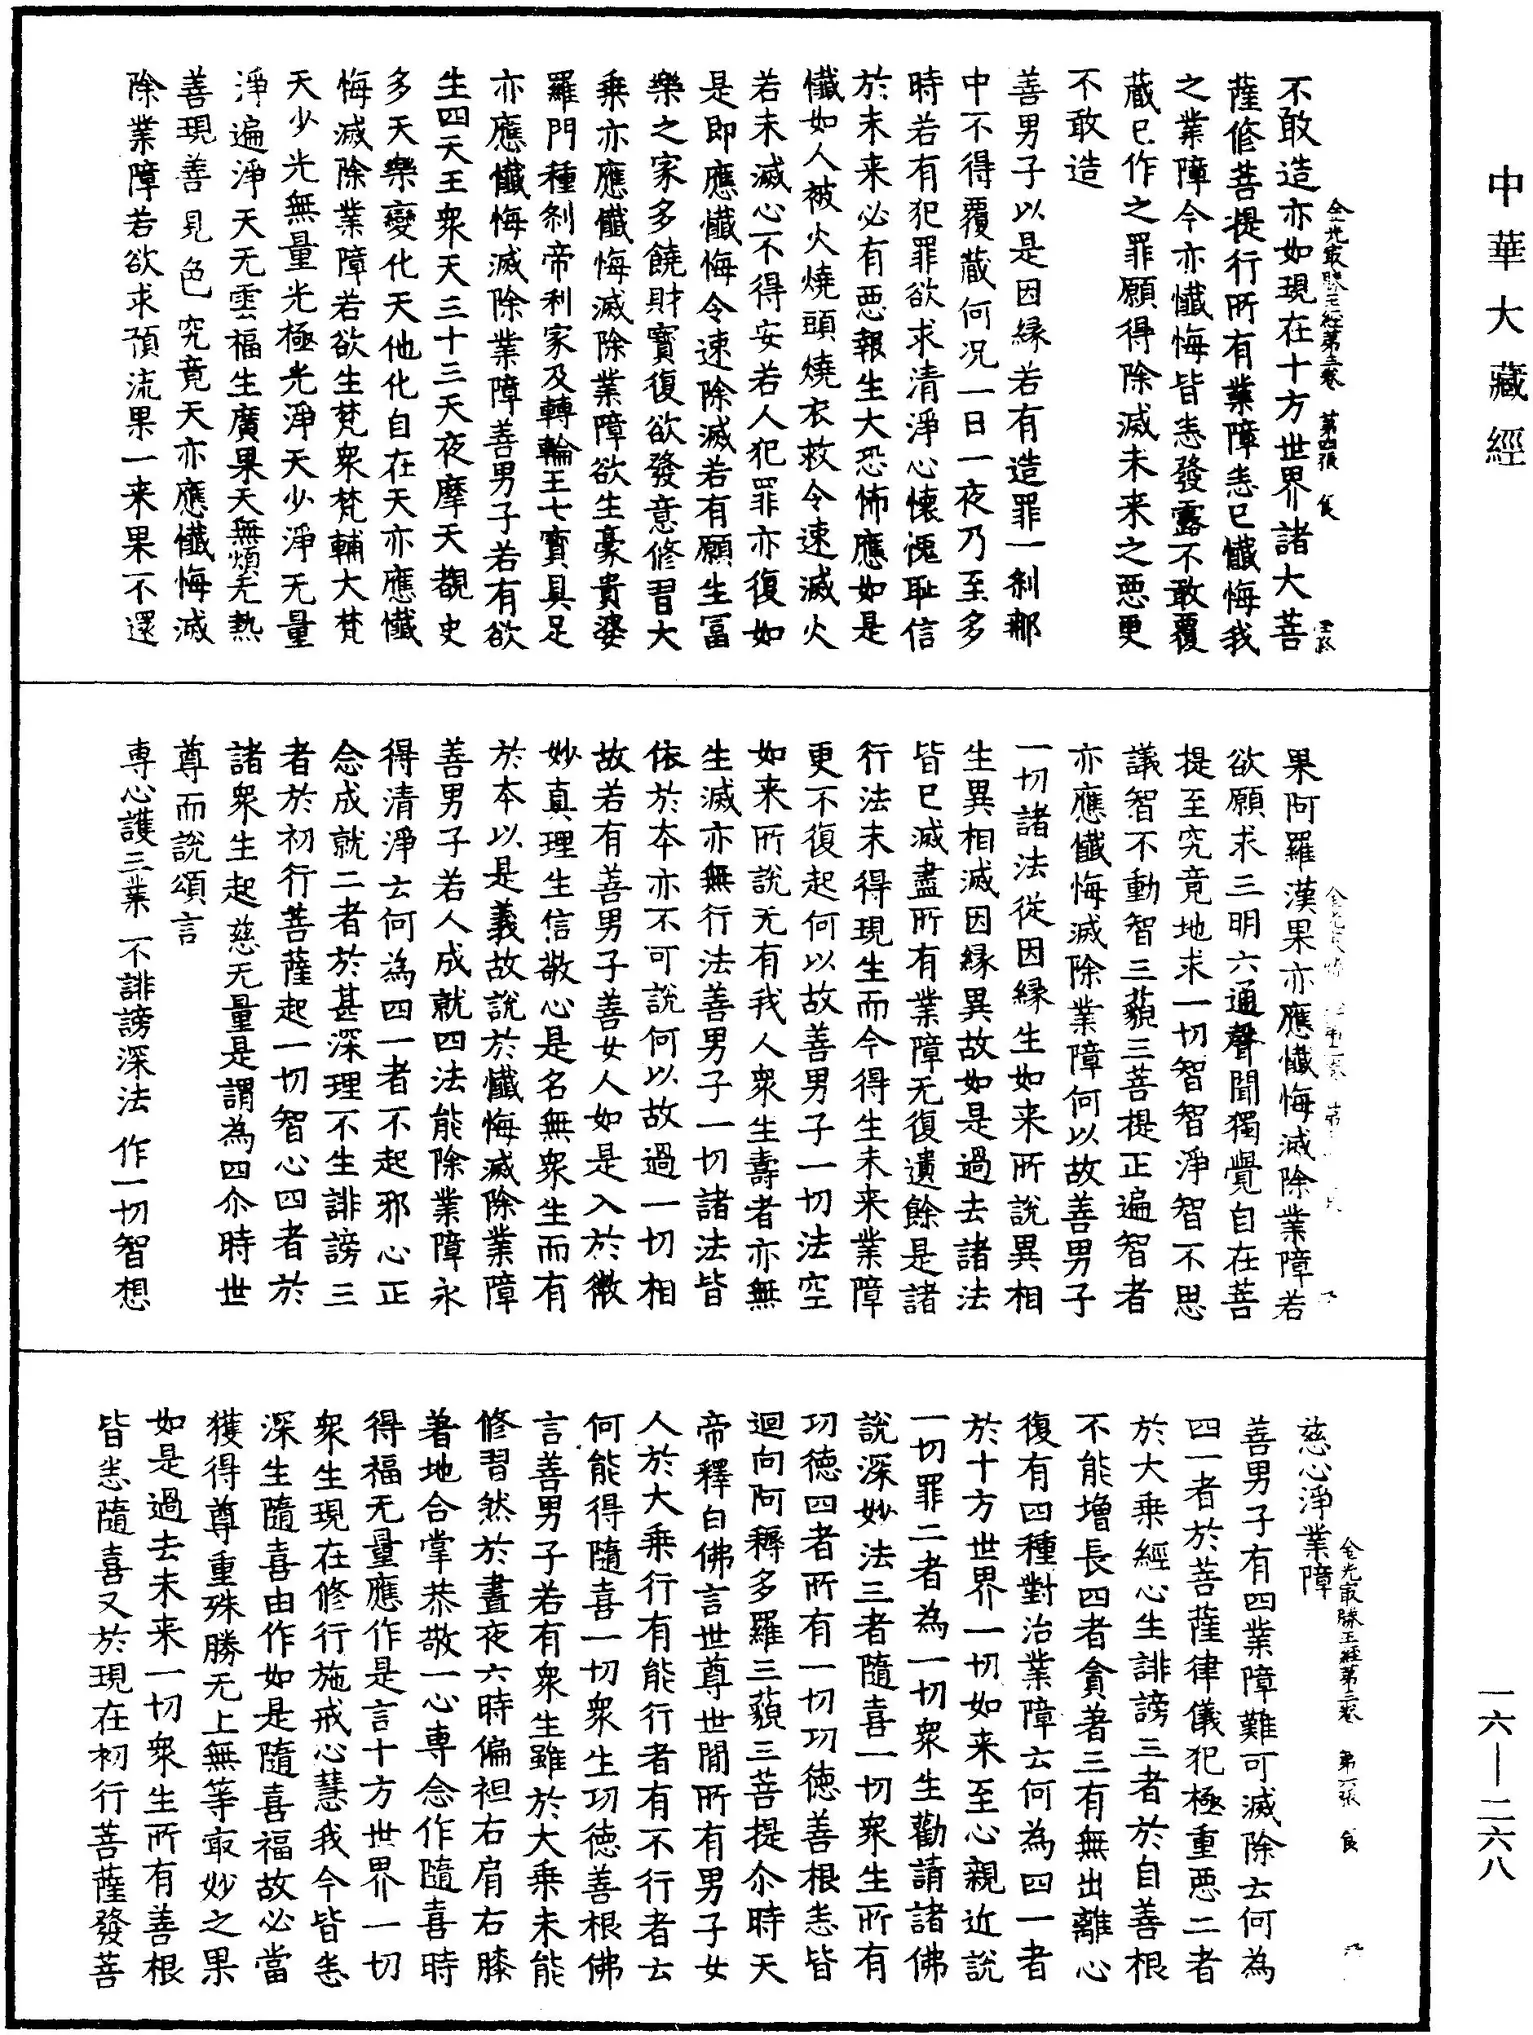 中華大藏經
不敢造亦如現在十方世界諸大菩
薩修菩提行所有業障悉已懺悔我
之業障今亦懺悔皆悉發露不敢覆
藏已作之罪願得除滅未来之惡更
不敢造
善男子以是因縁若有造罪一刹那
中不得覆藏何況一日一夜乃至多
時若有犯罪欲求清淨心懷愧恥信
於未来必有惡報生大恐怖應如是
懺如人被火燒頭燒衣救令速滅火
若未滅心不得安若人犯罪亦復如
是即應懺悔令速除滅若有願生冨
樂之家多饒財寶復欲發意修習大
乗亦應懺悔滅除業障欲生豪貴婆
羅門種刹帝利家及轉輪王七寶具足
亦應懺悔滅除業障善男子若有欲
生四天王衆天三十三天夜摩天覩史
多天樂變化天他化自在天亦應懺
悔滅除業障若欲生梵衆梵輔大梵
天少光無量光極光淨天少淨无量
淨遍淨天无雲福生廣果天無煩无熱
善現善見色究竟天亦應懺悔滅
除業障若欲求預流果一来果不還
果阿羅漢果亦應懺悔滅除業障若
欲願求三明六通聲聞獨覺自在菩
提至究竟地求一切智智淨智不思
議智不動智三藐三菩提正遍智者
亦應懺悔滅除業障何以故善男子
一切諸法從因縁生如来所說異相
生異相滅因縁異故如是過去諸法
皆已滅盡所有業障无復遺餘是諸
行法未得現生而今得生未来業障
更不復起何以故善男子一切法空
如来所說无有我人衆生壽者亦無
生滅亦無行法善男子一切諸法皆
依於本亦不可說何以故過一切相
故若有善男子善女人如是入於微
妙真理生信敬心是名無衆生而有
於本以是義故說於懺悔滅除業障
善男子若人成就四法能除業障永
得清淨云何為四一者不起邪心正
念成就二者於甚深理不生誹謗三
者於初行菩薩起一切智心四者於
諸衆生起慈无量是謂為四尒時世
尊而說頌言
專心護三業 不誹謗深法 作一切智想
金光㝡勝王經第三卷 第六張 食
慈心淨業障
善男子有四業障難可滅除云何為
四一者於菩薩律儀犯極重惡二者
於大乗經心生誹謗三者於自善根
不能增長四者貪著三有無出離心
復有四種對治業障云何為四一者
於十方世界一切如来至心親近說
一切罪二者為一切衆生勸請諸佛
說深妙法三者隨喜一切衆生所有
功徳四者所有一切功徳善根悉皆
迴向阿耨多羅三藐三菩提尒時天
帝釋白佛言世尊世間所有男子女
人於大乗行有能行者有不行者云
何能得隨喜一切衆生功徳善根佛
言善男子若有衆生雖於大乗未能
修習然於晝夜六時偏袒右肩右膝
著地合掌恭敬一心專念作隨喜時
得福无量應作是言十方世界一切
衆生現在修行施戒心慧我今皆悉
深生隨喜由作如是隨喜福故必當
獲得尊重殊勝无上無等㝡妙之果
如是過去未来一切衆生所有善根
皆悉隨喜又於現在初行菩薩發菩
一六—二六八